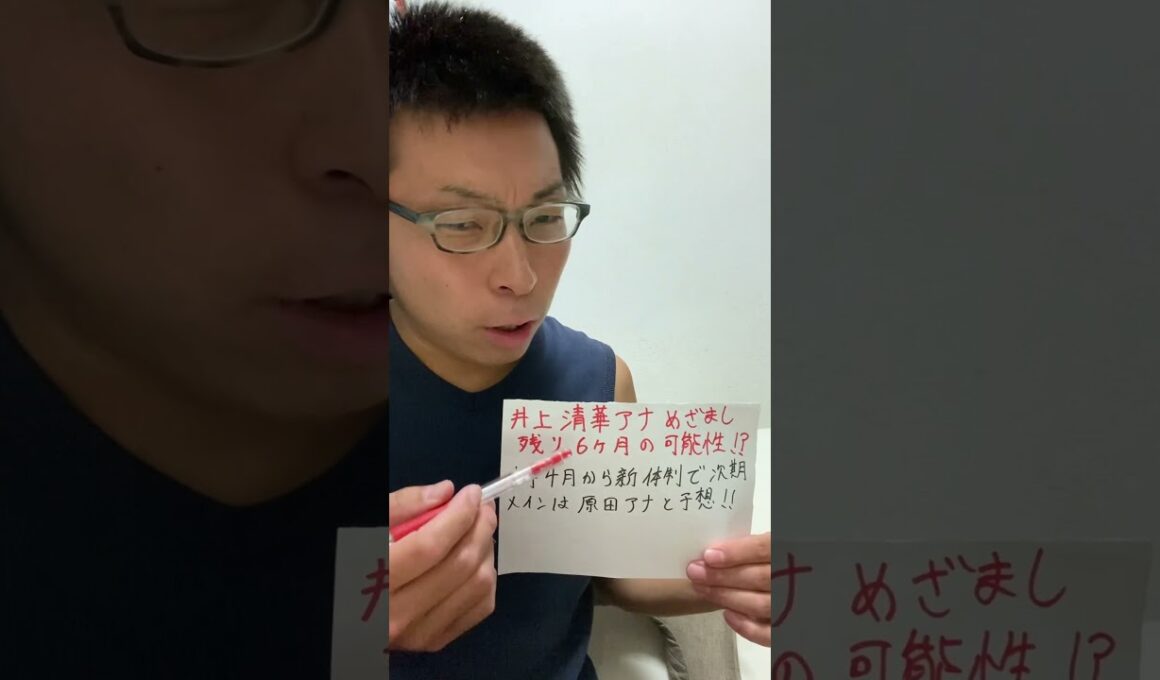 井上清華アナ めざまし
残り6ヶ月の可能性!?
4月から新体制で次期
メインは原田アナと予想!!
ナ めざまし
の可能性!?